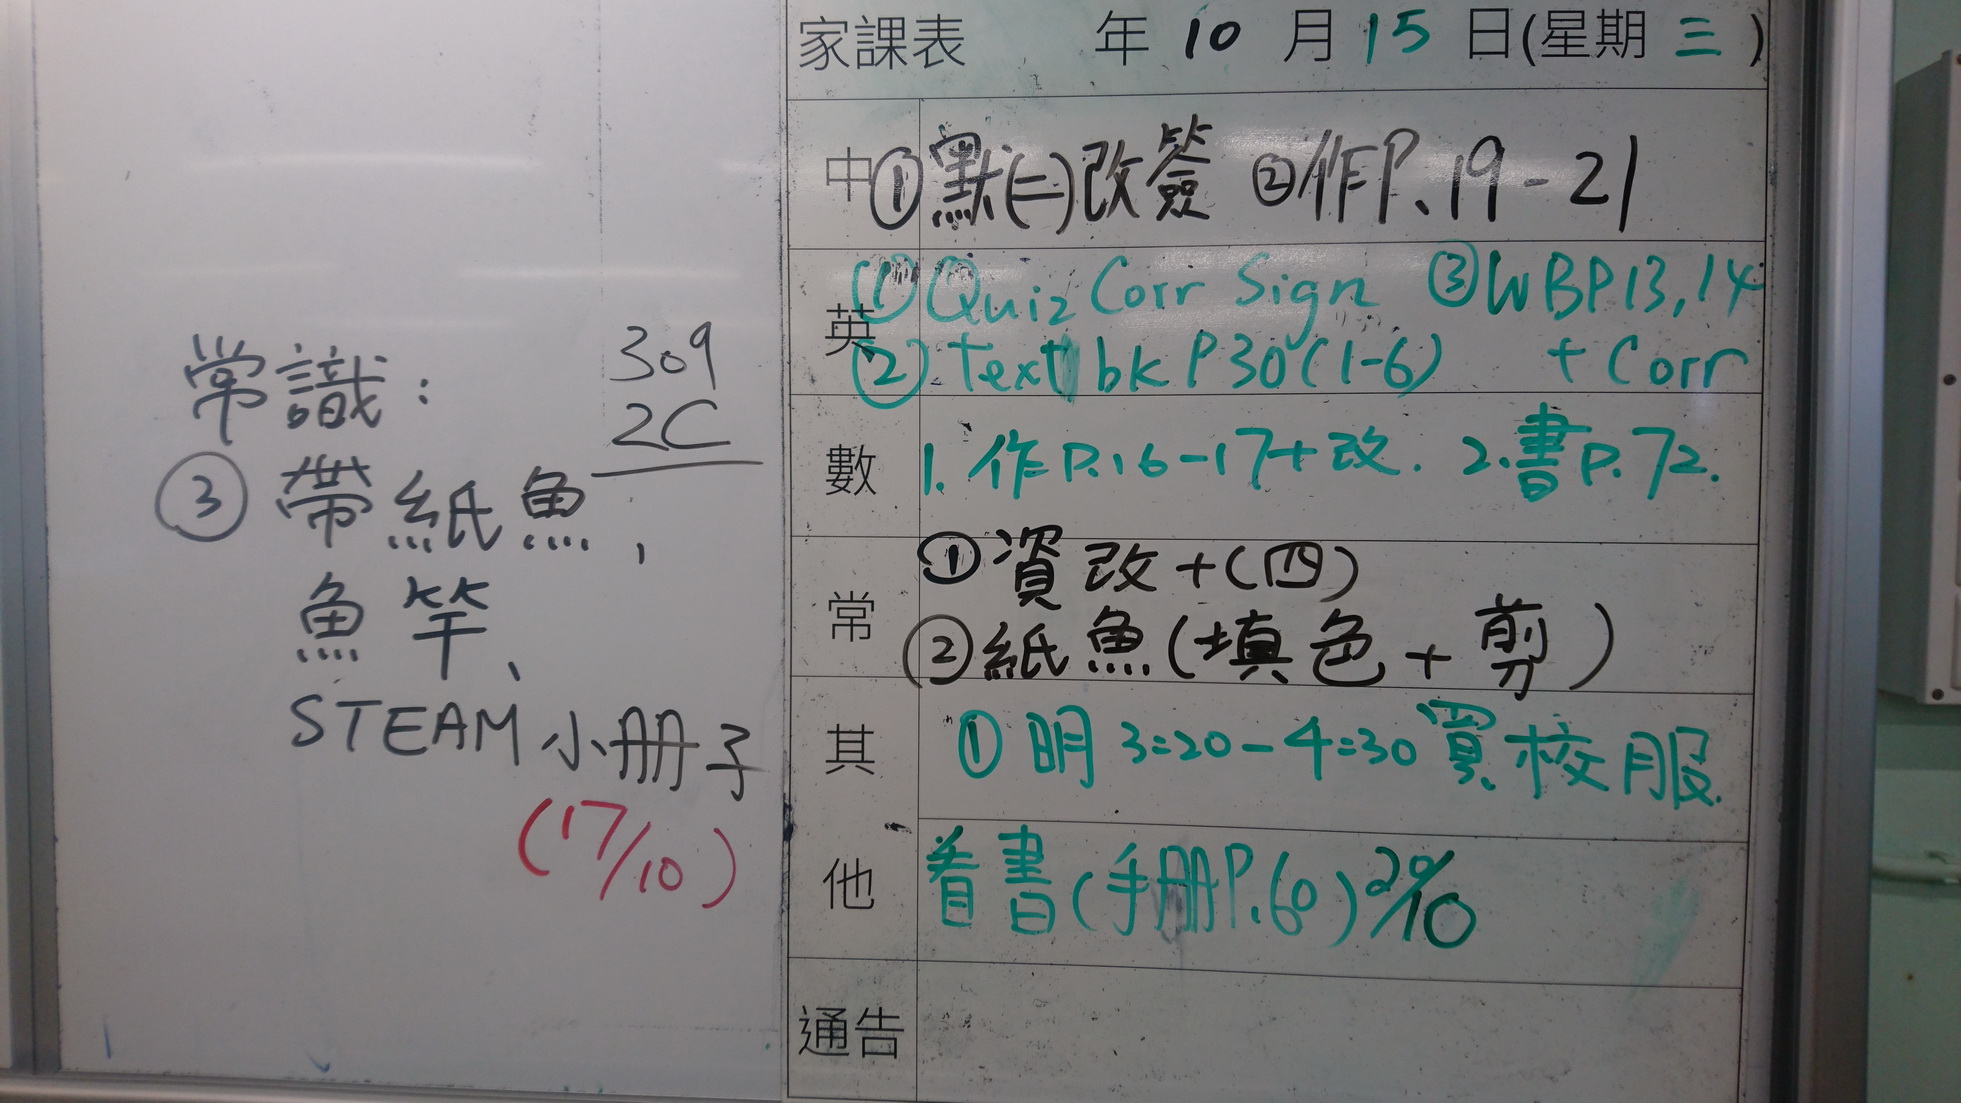 家課表 年 10 月 15 日(星期 三 )
中 ①默(二)改簽 ②作P.19-21
英 ①Quiz Corr Sign ③WBP13,14
②Text bk P30(1-6) + Corr
數 1. 作P.16-17+改. 2.書P.72.
常 ①資改+(四)
②紙魚(填色+剪)
其他 ①明3:20-4:30買校服
看書(手冊P.60)20/10
通告
309
2C
常識:
③帶紙魚,
魚竿、
STEAM小冊子
(17/10)